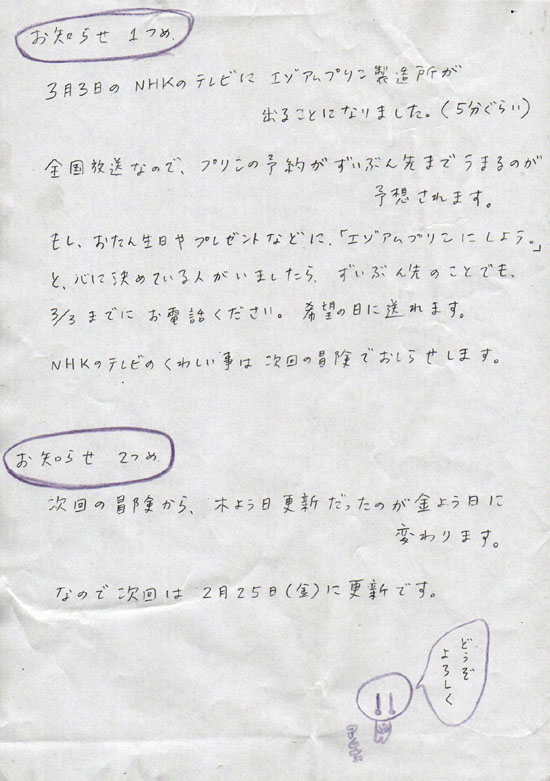 お知らせ 1つめ
3月3日の NHKのテレビに エゾアムプリン製造所が
出ることになりました。(5分ぐらい)
全国放送なので、プリンの予約がずいぶん先までうまるのが
予想されます。
もし、おたん生日やプレゼントなどに、「エゾアムプリンにしよう。」
と、心に決めている人がいましたら、ずいぶん先のことでも、
3/3 までに お電話ください。 希望の日に送れます。
NHKのテレビのくわしい事は 次回の冒険でおしらせします。
お知らせ 2つめ
次回の冒険から、木よう日更新だったのが金よう日に
変わります。
なので次回は 2月25日(金)に更新です。
どうぞ
よろしく